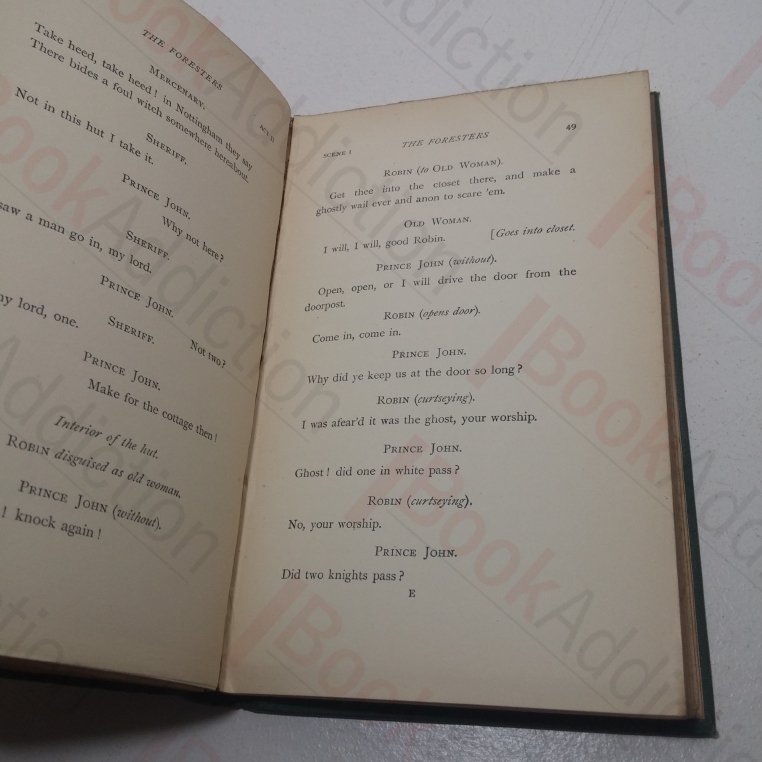 THE FORESTERS
ACT II
MERCENARY.
Take heed, take heed! in Nottingham they say
There bides a foul witch somewhere hereabout.
SHERIFF.
Not in this hut I take it.
PRINCE JOHN.
Why not here?
SHERIFF.
saw a man go in, my lord.
PRINCE JOHN.
Not two?
SHERIFF.
my lord, one.
PRINCE JOHN.
Make for the cottage then!
Interior of the hut.
ROBIN disguised as old woman.
PRINCE JOHN (without).
! knock again!
SCENE I
THE FORESTERS
49
ROBIN (to OLD WOMAN).
Get thee into the closet there, and make a
ghostly wail ever and anon to scare 'em.
OLD WOMAN.
I will, I will, good Robin. [Goes into closet.
PRINCE JOHN (without).
Open, open, or I will drive the door from the
doorpost.
ROBIN (opens door).
Come in, come in.
PRINCE JOHN.
Why did ye keep us at the door so long?
ROBIN (curtseying).
I was afear'd it was the ghost, your worship.
PRINCE JOHN.
Ghost! did one in white pass?
ROBIN (curtseying).
No, your worship.
PRINCE JOHN.
Did two knights pass?
E
BookAddiction